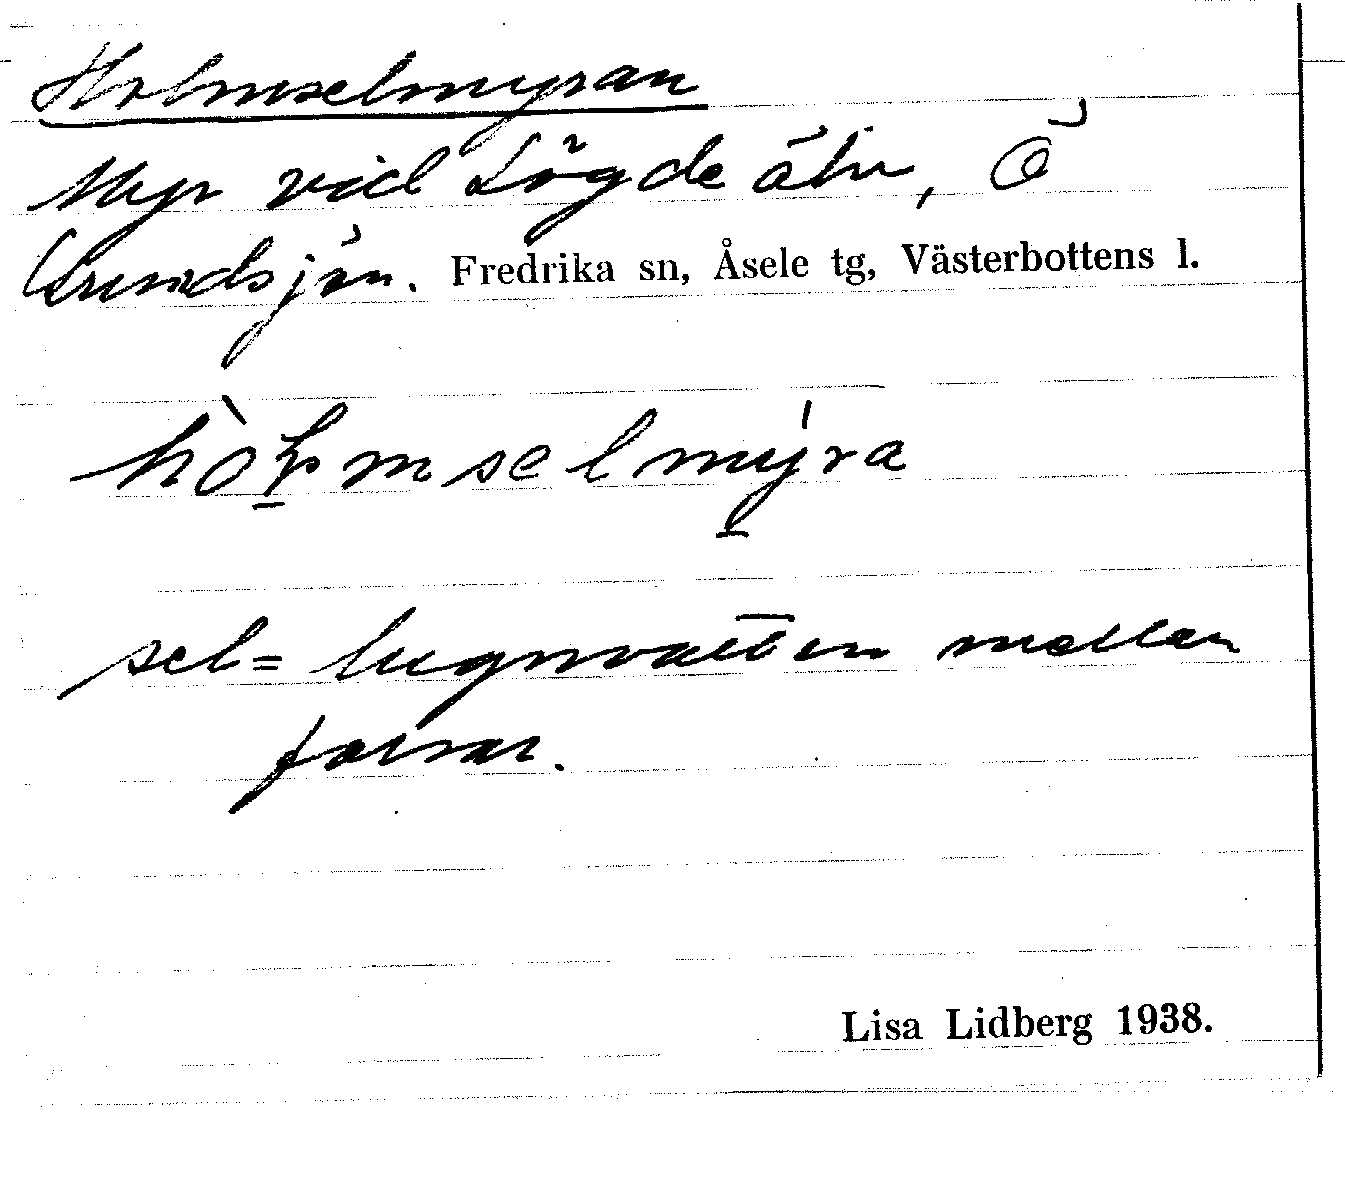 Holmselmyran
Myr vid Lögde älv, Ö
Lundsjön. Fredrika sn, Åsele tg, Västerbottens l.
hò̱ḷmselmýra
sel = lugnvatten mellan
forsar.
Lisa Lidberg 1938.